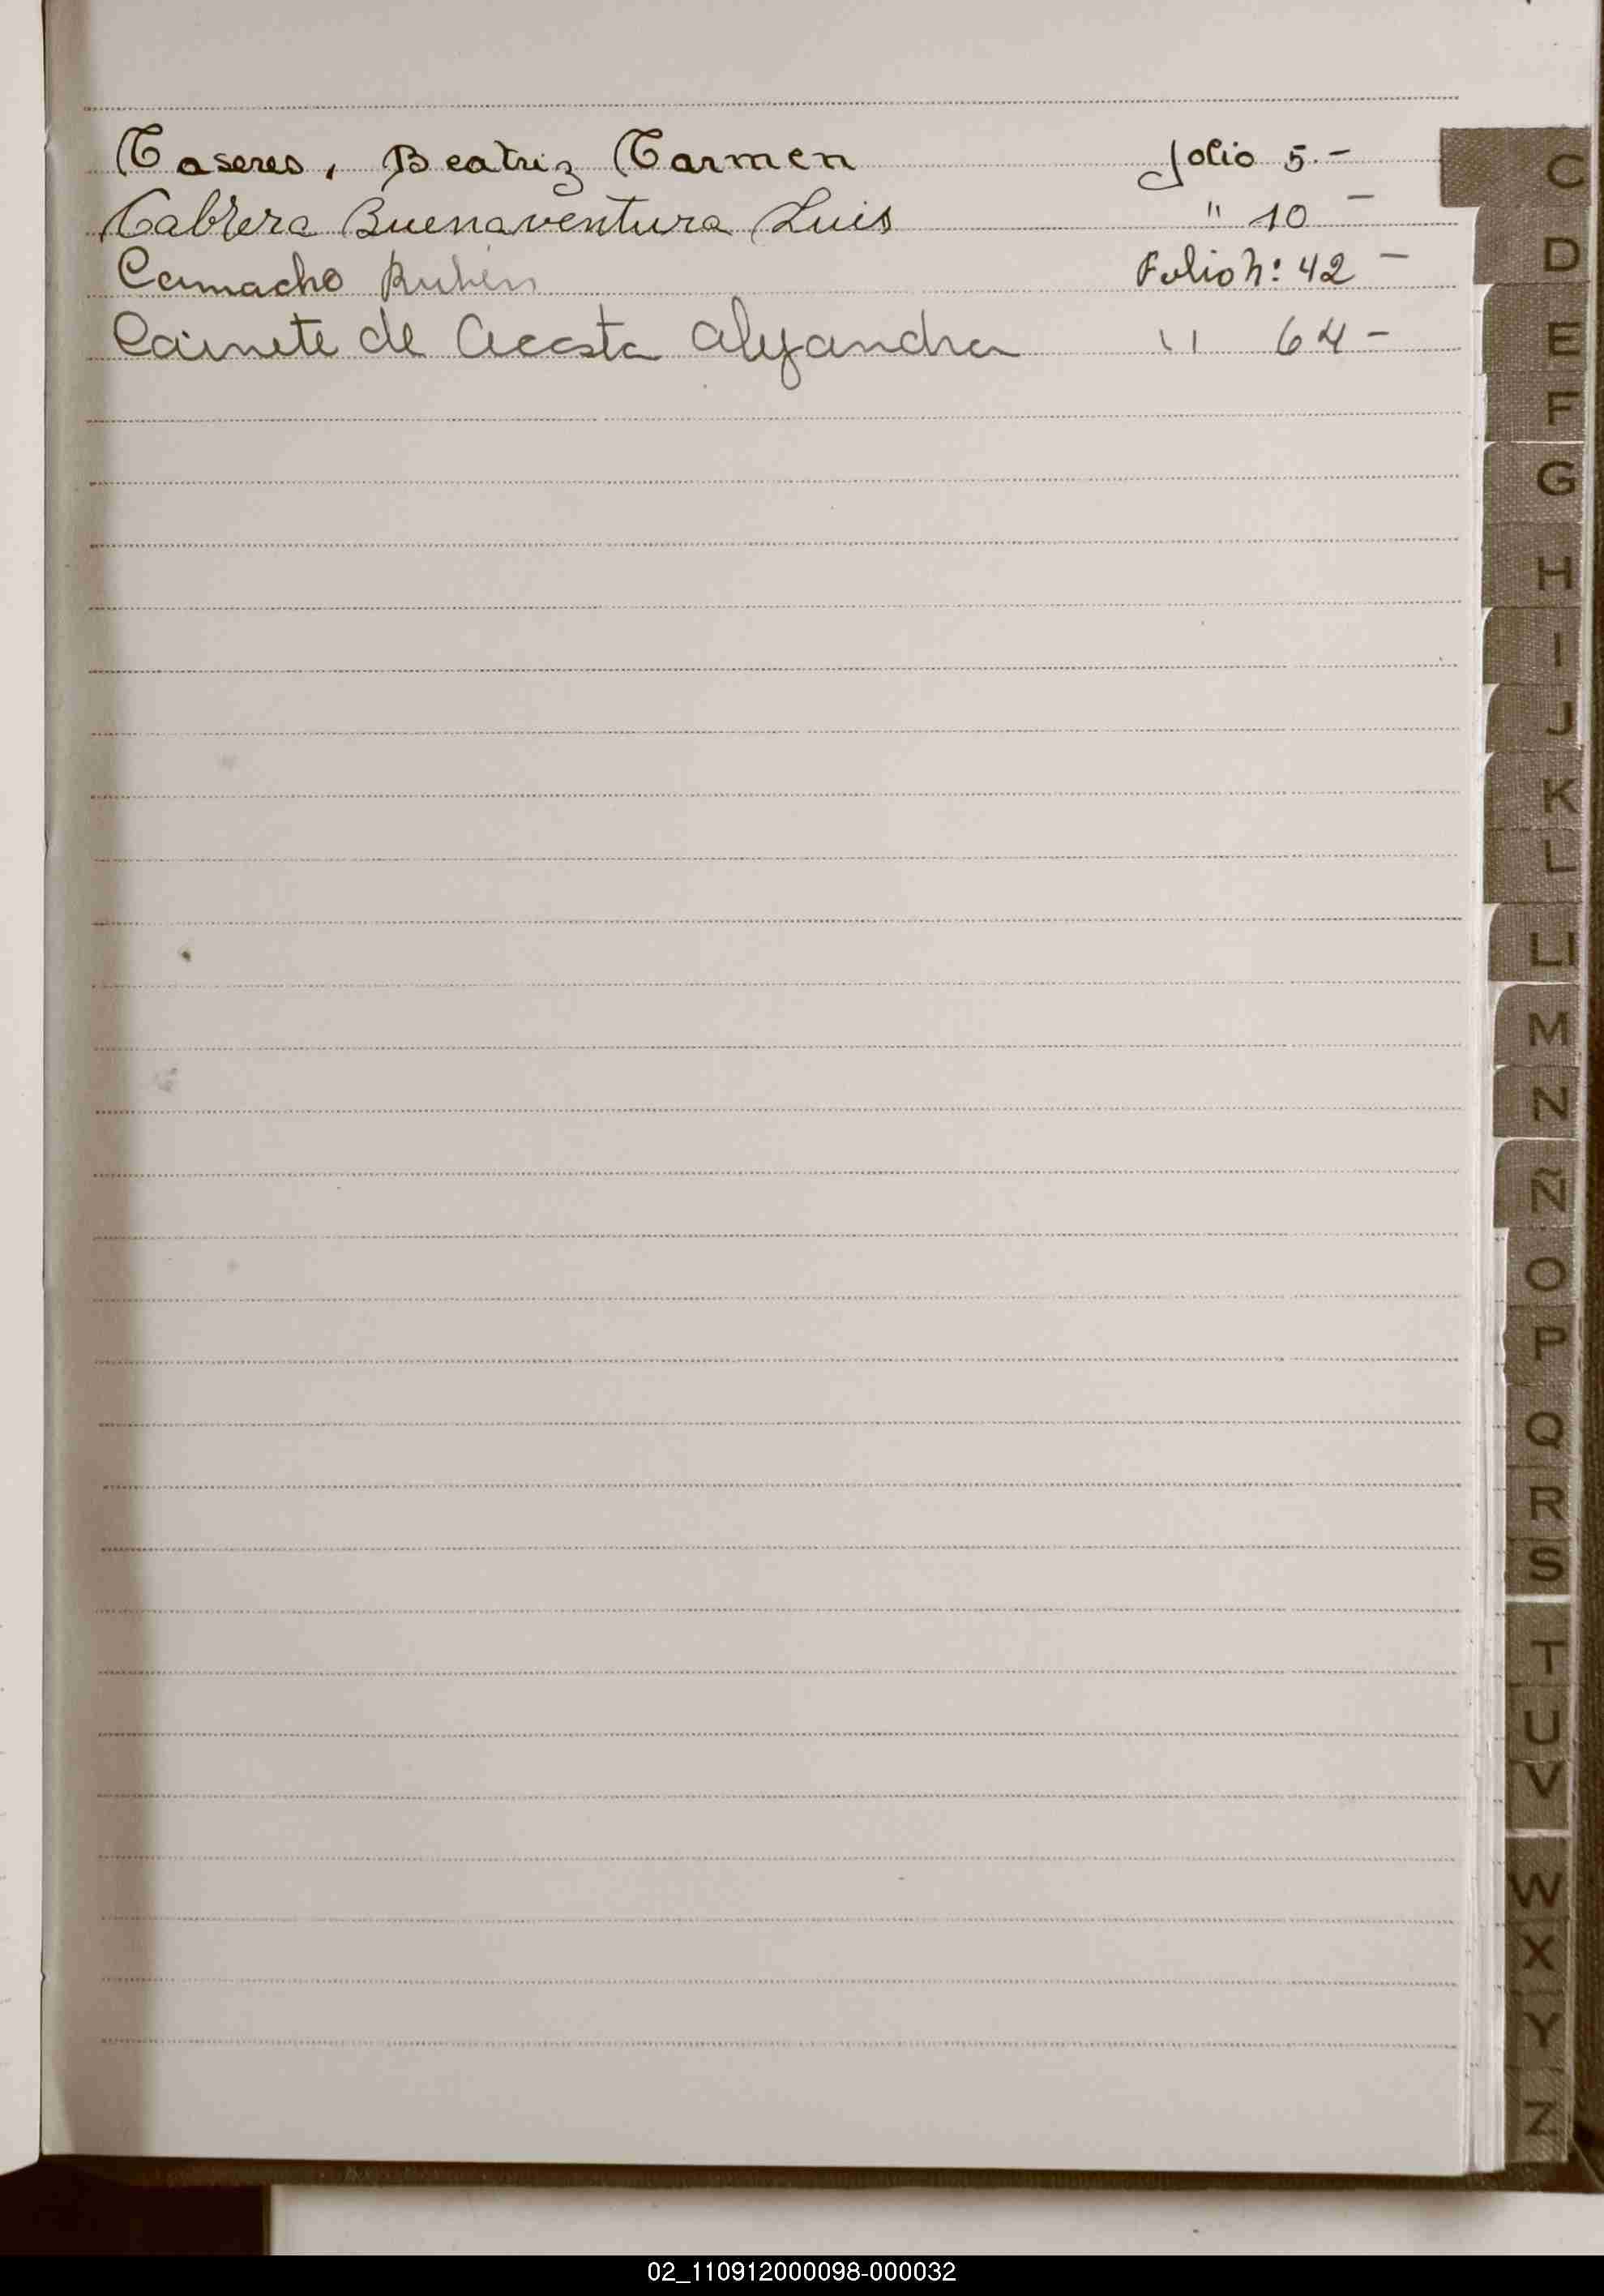 Caseres, Beatriz Carmen folio 5.-
Cabrera Buenaventura Luis " 10 -
Camacho Rubén Folio n: 42 -
de Acosta Alejandra " 64 -
C
D
E
F
G
H
I
J
K
L
Ll
M
N
Ñ
O
P
Q
R
S
T
U
V
W
X
Y
Z
02_110912000098-000032